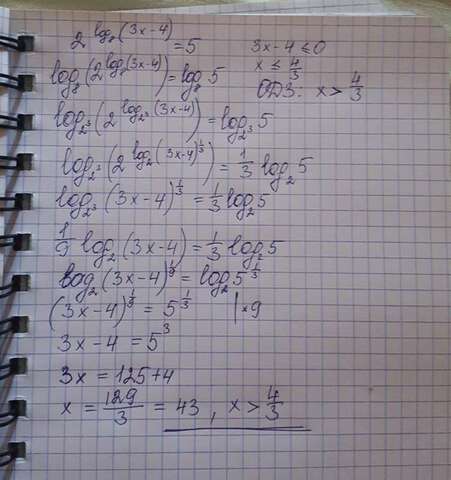 2^{log_8(3x-4)} = 5
3x-4 ≤ 0
x ≤ 4/3
ОДЗ: x > 4/3
log_8(2^{log_8(3x-4)}) = log_8 5
log_{2^3}(2^{log_{2^3}(3x-4)}) = log_{2^3} 5
log_{2^3}(2^{log_2(3x-4)^{1/3}}) = 1/3 log_2 5
log_{2^3}(3x-4)^{1/3} = 1/3 log_2 5
1/9 log_2(3x-4) = 1/3 log_2 5
log_2(3x-4)^{1/9} = log_2 5^{1/3}
(3x-4)^{1/9} = 5^{1/3} |×9
3x-4 = 5^3
3x = 125+4
x = 129/3 = 43, x > 4/3